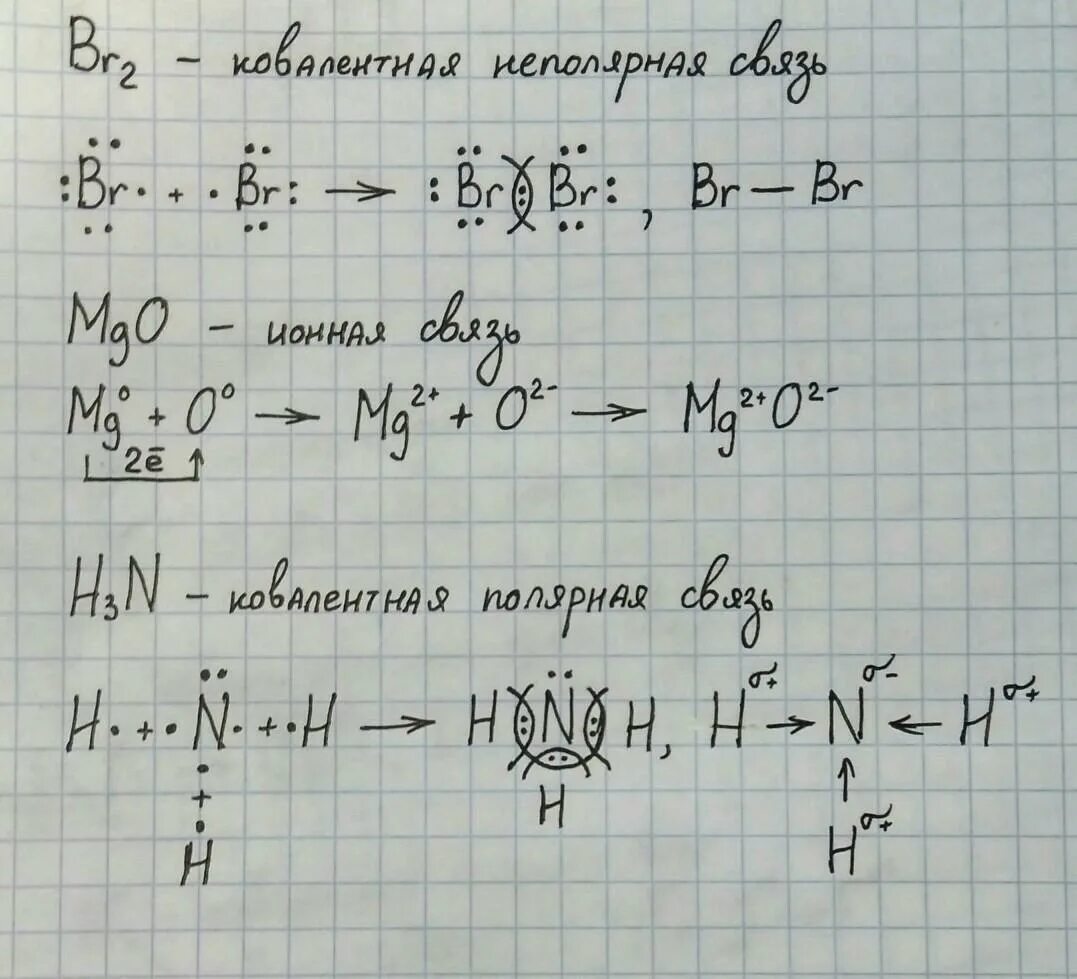 Br₂ – ковалентная неполярная связь
:Br· + ·Br: → :Br:Br:, Br – Br
MgO – ионная связь
Mg⁰ + O⁰ → Mg²⁺ + O²⁻ → Mg²⁺O²⁻
2ē
H₃N – ковалентная полярная связь
H· + ·N· + ·H → H:N:H, H^σ+ → N^σ- ← H^σ+
+ ↑
H H H^σ+